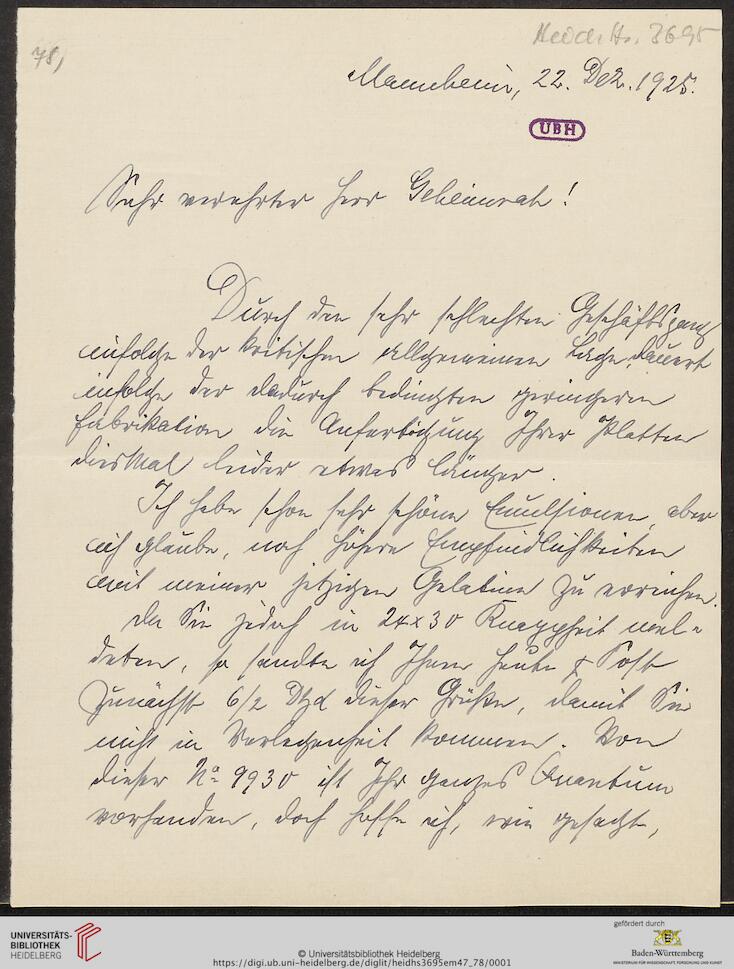 Heid. Hs. 3695
78,
Mannheim, 22. Dez. 1925.
UBH
Sehr verehrter Herr Geheimrat!
Durch den sehr schlechten Geschäftsgang
infolge der kritischen allgemeinen Lage, dauert
infolge der dadurch bedingten geringeren
Fabrikation die Anfertigung Ihrer Platten
diesmal leider etwas länger.
Ich habe schon sehr schöne Emulsionen, aber
ich glaube, noch höhere Empfindlichkeiten
mit meiner jetzigen Gelatine zu erreichen.
Da Sie jedoch in 24x30 Knappheit mel-
deten, so sandte ich Ihnen heute p Post
zunächst 6/2 Dtzd dieser Größe, damit Sie
nicht in Verlegenheit kommen. Von
dieser No 9930 ist Ihr ganzes Quantum
vorhanden, doch hoffe ich, wie gesagt,
UNIVERSITÄTS-
BIBLIOTHEK
HEIDELBERG
© Universitätsbibliothek Heidelberg
https://digi.ub.uni-heidelberg.de/diglit/heidhs3695em47_78/0001
gefördert durch
Baden-Württemberg
MINISTERIUM FÜR WISSENSCHAFT, FORSCHUNG UND KUNST